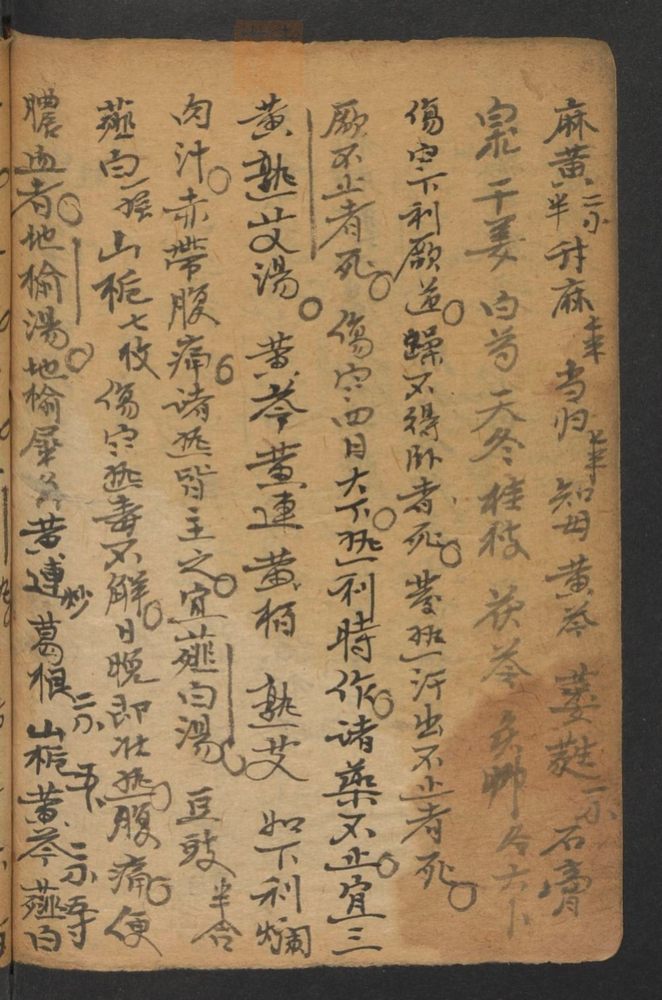 麻黄二分半升麻七半当归七半知母黄芩葳蕤一分石膏
白朮干姜白芍天冬桂枝茯苓炙艸各六卜
傷寒下利厥逆躁不得卧者死發热汗出不止者死
厥不止者死傷寒四日大下热利時作諸藥不止宜三
黄熟艾湯黄芩黄連黄柏熟艾如下利爛
肉汁赤帶腹痛諸热皆主之宜薤白湯豆豉半合
薤白一握山栀七枚傷寒热毒不解日晚即壮热腹痛便
膿血者地榆湯地榆犀角黄連炒葛根二分五卜山栀黄芩二分薤白